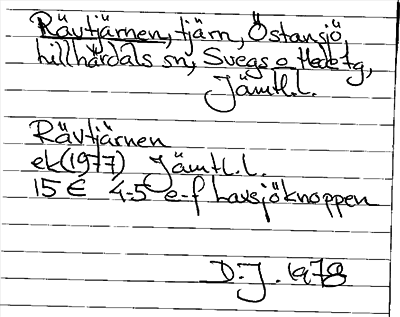 Rävtjärnen, tjärn, Östansjö
hillhärdals sn, Svegs o Hede tg,
Jämtl.l.
Rävtjärnen
ek(1977) Jämtl.l.
15E 4-5 e-f havsjöknoppen
D.J. 1978